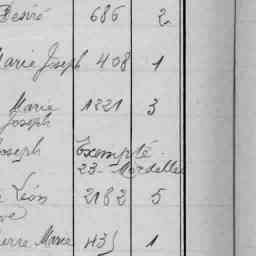 Desiré 686 2
Marie Joseph 408 1
Marie 1221 3
Joseph
Joseph Exempté
23 - Mordelles
Léon 2182 5
Pierre Marie 435 1